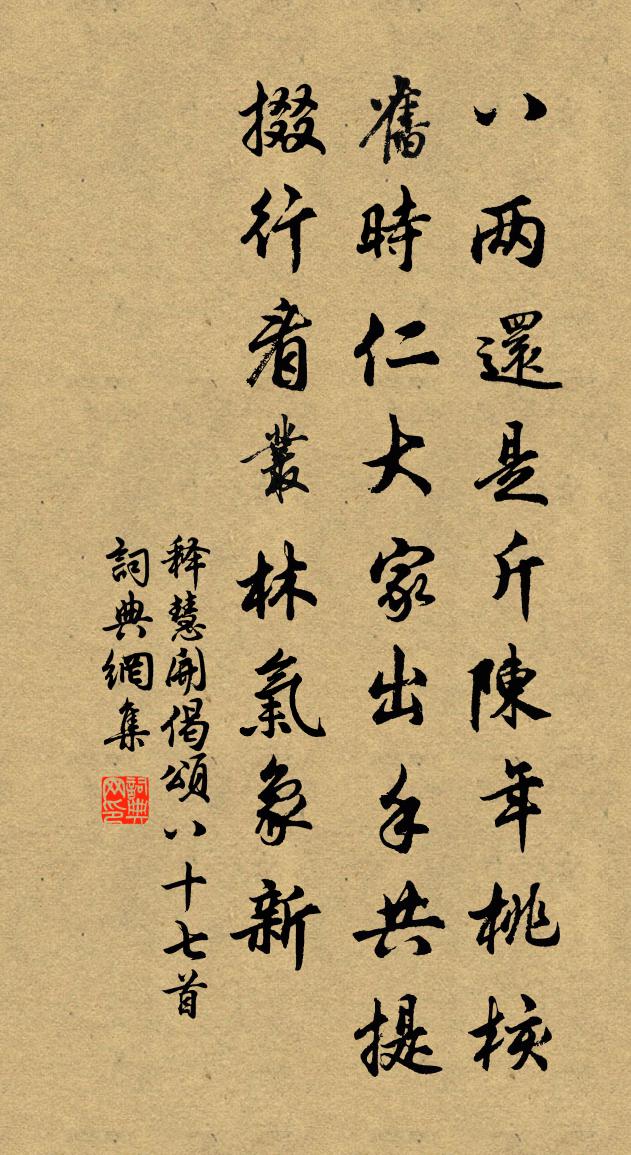 八两還是斤陳年桃核
舊時仁大家出手共提
掇行看叢林氣象新
释慧開偈頌八十七首
詞典網集
詞典网印